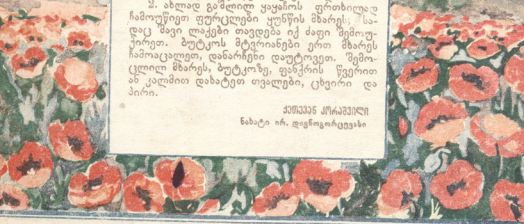 2. ახლად გაშლილ ყაყაჩოს ფრთხილად
ჩამოუწიეთ ფურცლები ყუნწის მხარეს; სა-
დაც შავი ლაქები თავდება იქ ძაფი შემოუ-
ჭირეთ. ბუტკოს მტვრიანები ერთ მხარეს
ჩამოაცალეთ, დანარჩენი დაუტოვეთ. შემო-
ცლილ მხარეს, ბუტკოზე, ფანქრის წვერით
ან კალმით დახატეთ თვალები, ცხვირი და
პირი.
ქეთევან კორაშვილი
ნახატი ირ. დიგნოგორცევასი